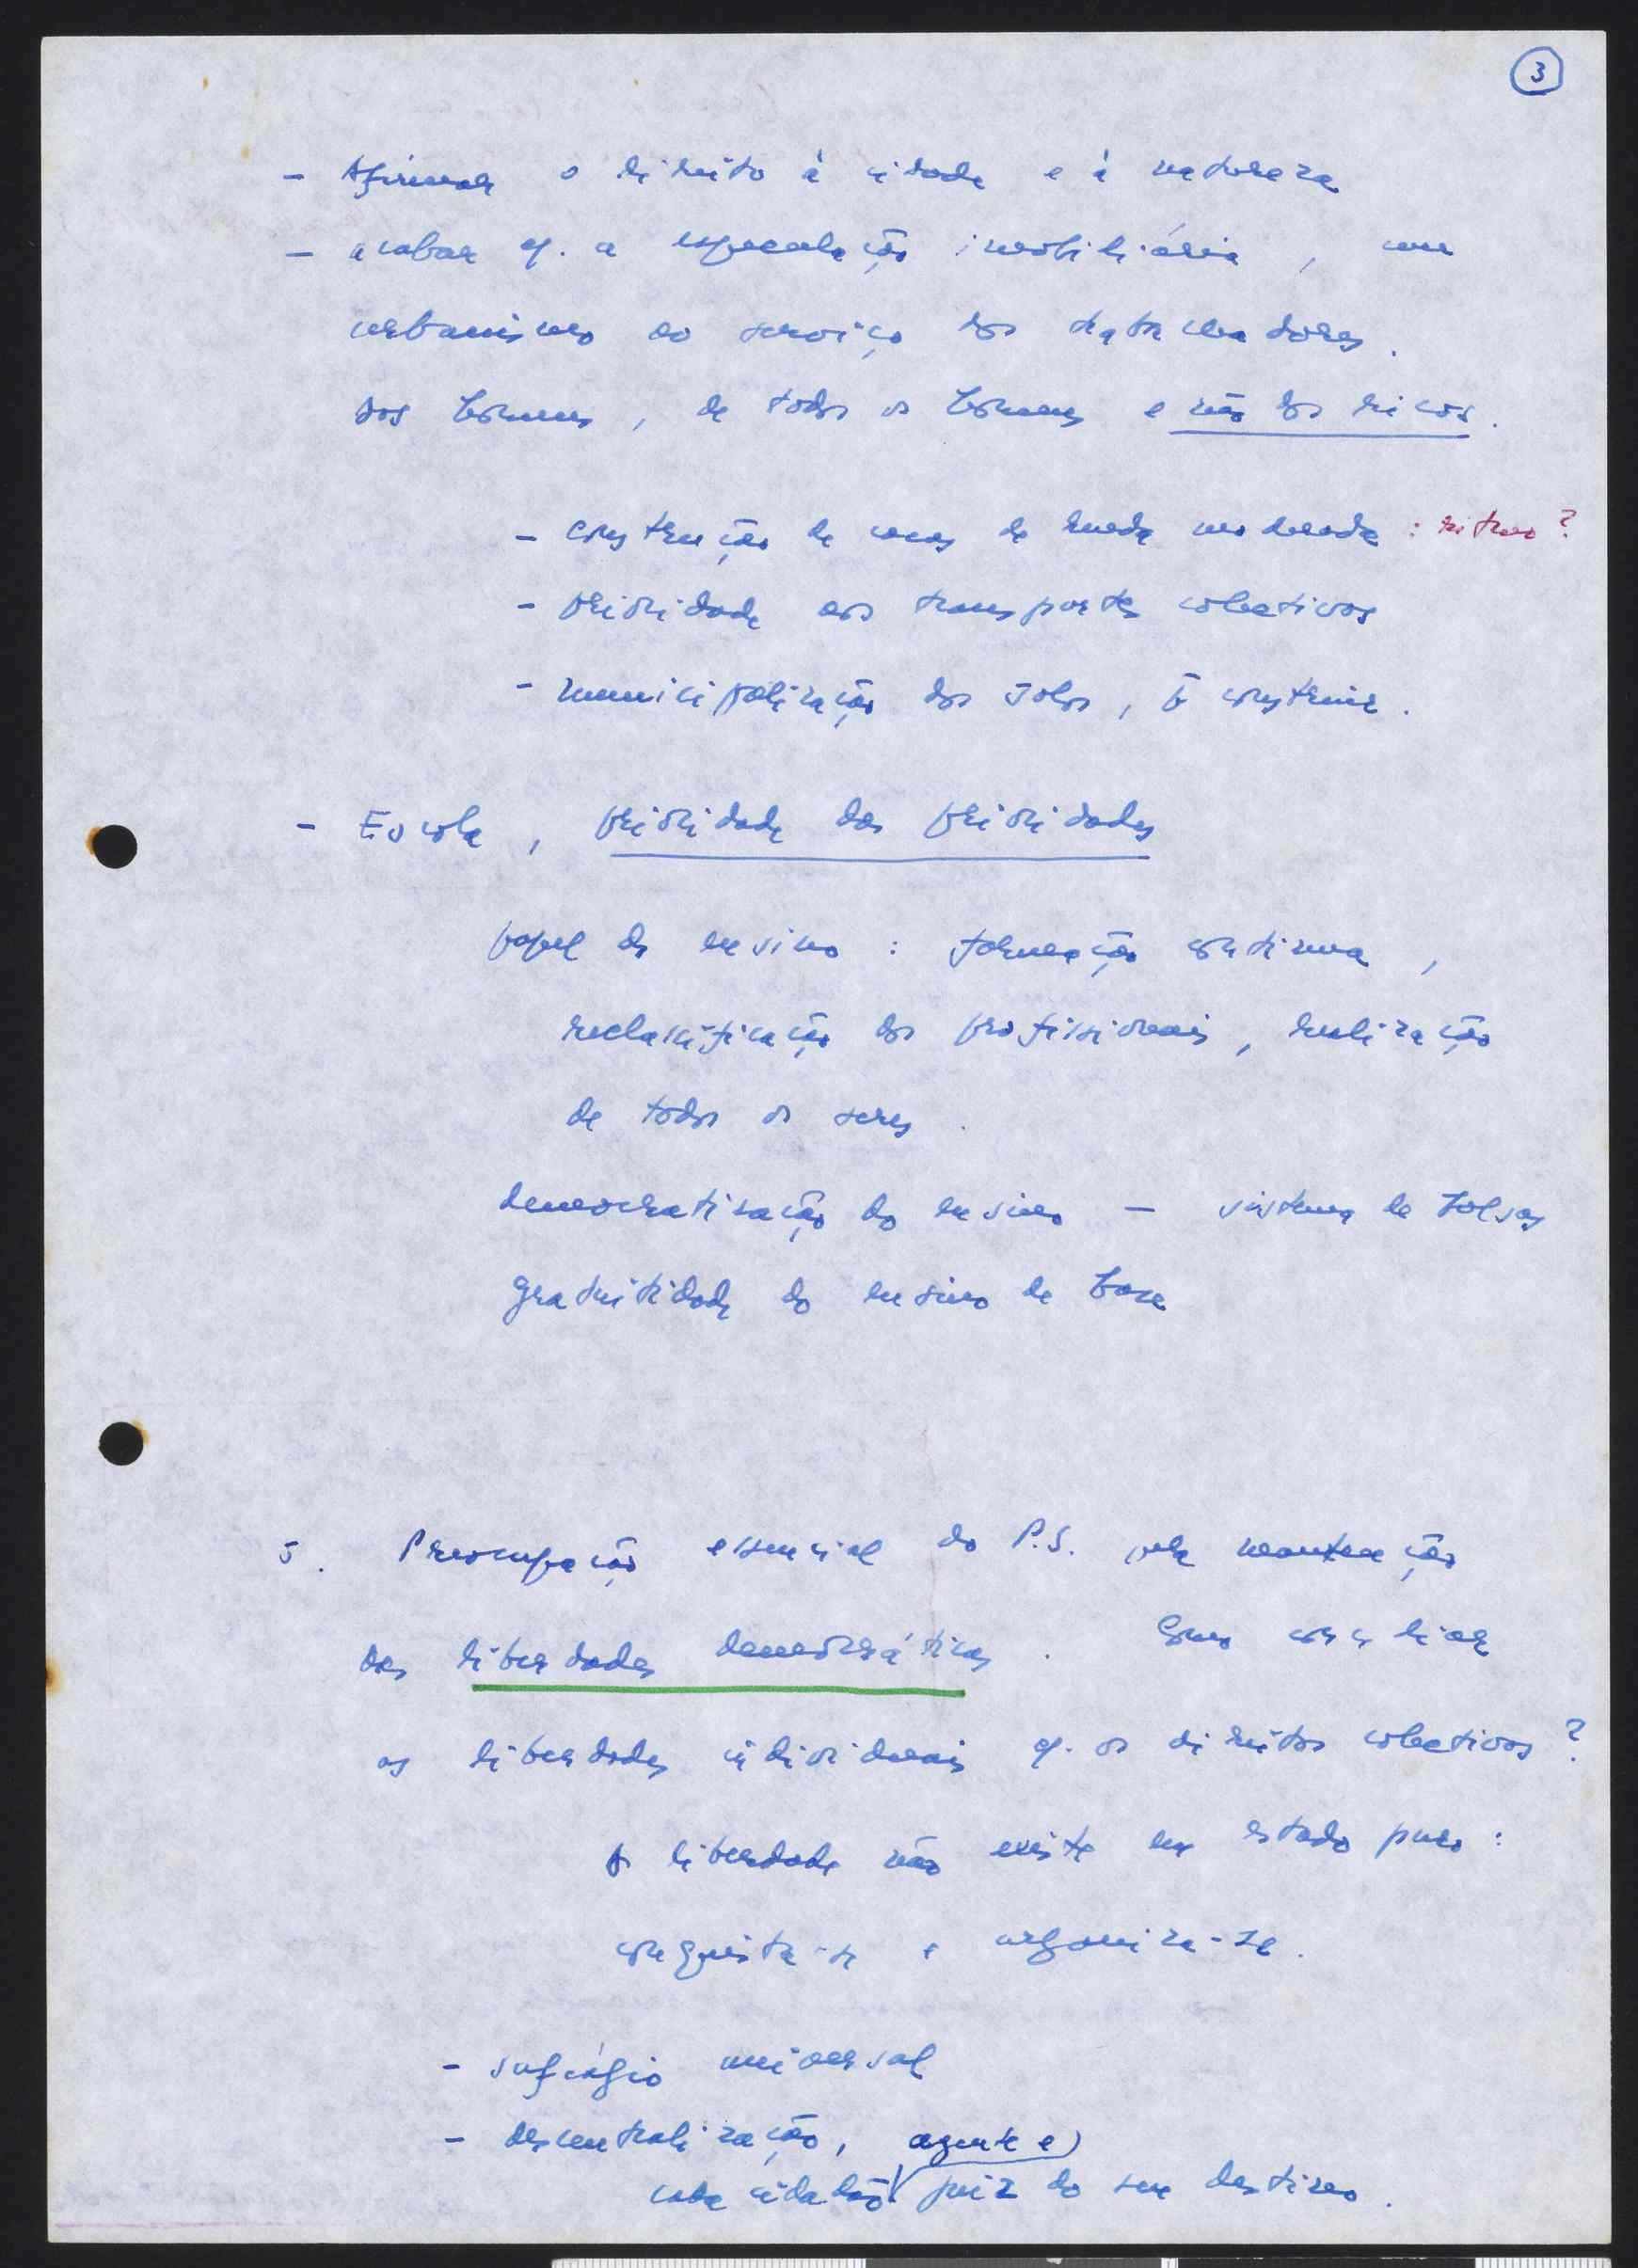 3
- Afirmar o direito à cidade e à natureza
- acabar c/. a especulação imobiliária, um
urbanismo ao serviço dos trabalhadores.
dos homens, de todos os homens e não dos ricos.
- construção de casas de renda moderada : ritmo?
- prioridade aos transportes colectivos
- municipalização dos solos, p/ construir.
- Escola, prioridade das prioridades
papel do ensino : formação contínua,
reclassificação dos profissionais, realização
de todos os seres.
democratização do ensino — sistema de bolsas
gratuitidade do ensino de base
5. Preocupação essencial do P.S. pela manutenção
das liberdades democráticas. Como conciliar
as liberdades individuais c/. os direitos colectivos?
A liberdade não existe em estado puro:
conquista-se e organiza-se.
- sufrágio universal
- descentralização, agente e
cada cidadão juiz do seu destino.